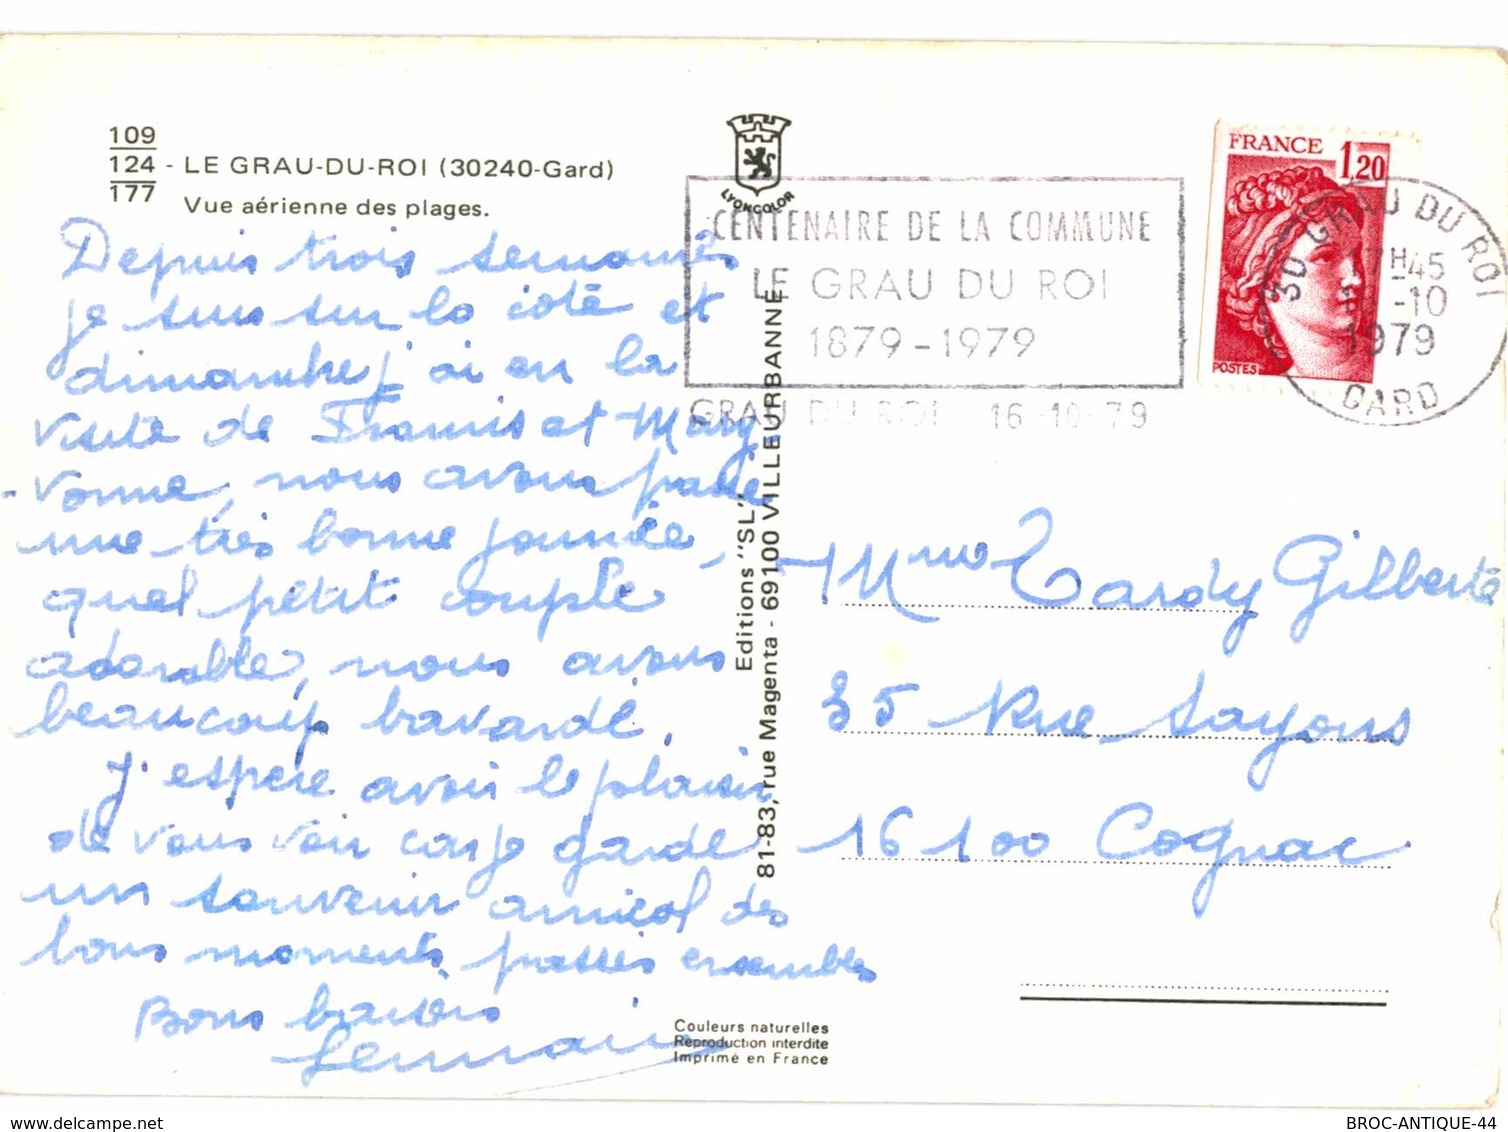 109
124 - LE GRAU-DU-ROI (30240-Gard)
177
Vue aérienne des plages.
LYONCOLOR
CENTENAIRE DE LA COMMUNE
LE GRAU DU ROI
1879-1979
GRAU DU ROI 16-10-79
FRANCE 1,20
POSTES
30 GRAU DU ROI
H 45
-10
1979
GARD
Depuis trois semaines
je suis sur la côte et
dimanche j'ai eu la
visite de Francis et Mary-
-vonne, nous avons passé
une très bonne journée,
quel petit couple
adorable, nous avons
beaucoup bavardé.
J'espère avoir le plaisir
de vous voir car je garde
un souvenir amical des
bons moments passés ensembles
Bons baisers
Germain
Editions "SL"
81-83, rue Magenta - 69100 VILLEURBANNE
Mme Tardy Gilberte
35 Rue Sayons
16100 Cognac
Couleurs naturelles
Reproduction interdite
Imprimé en France
delcampe.net
BROC-ANTIQUE-44